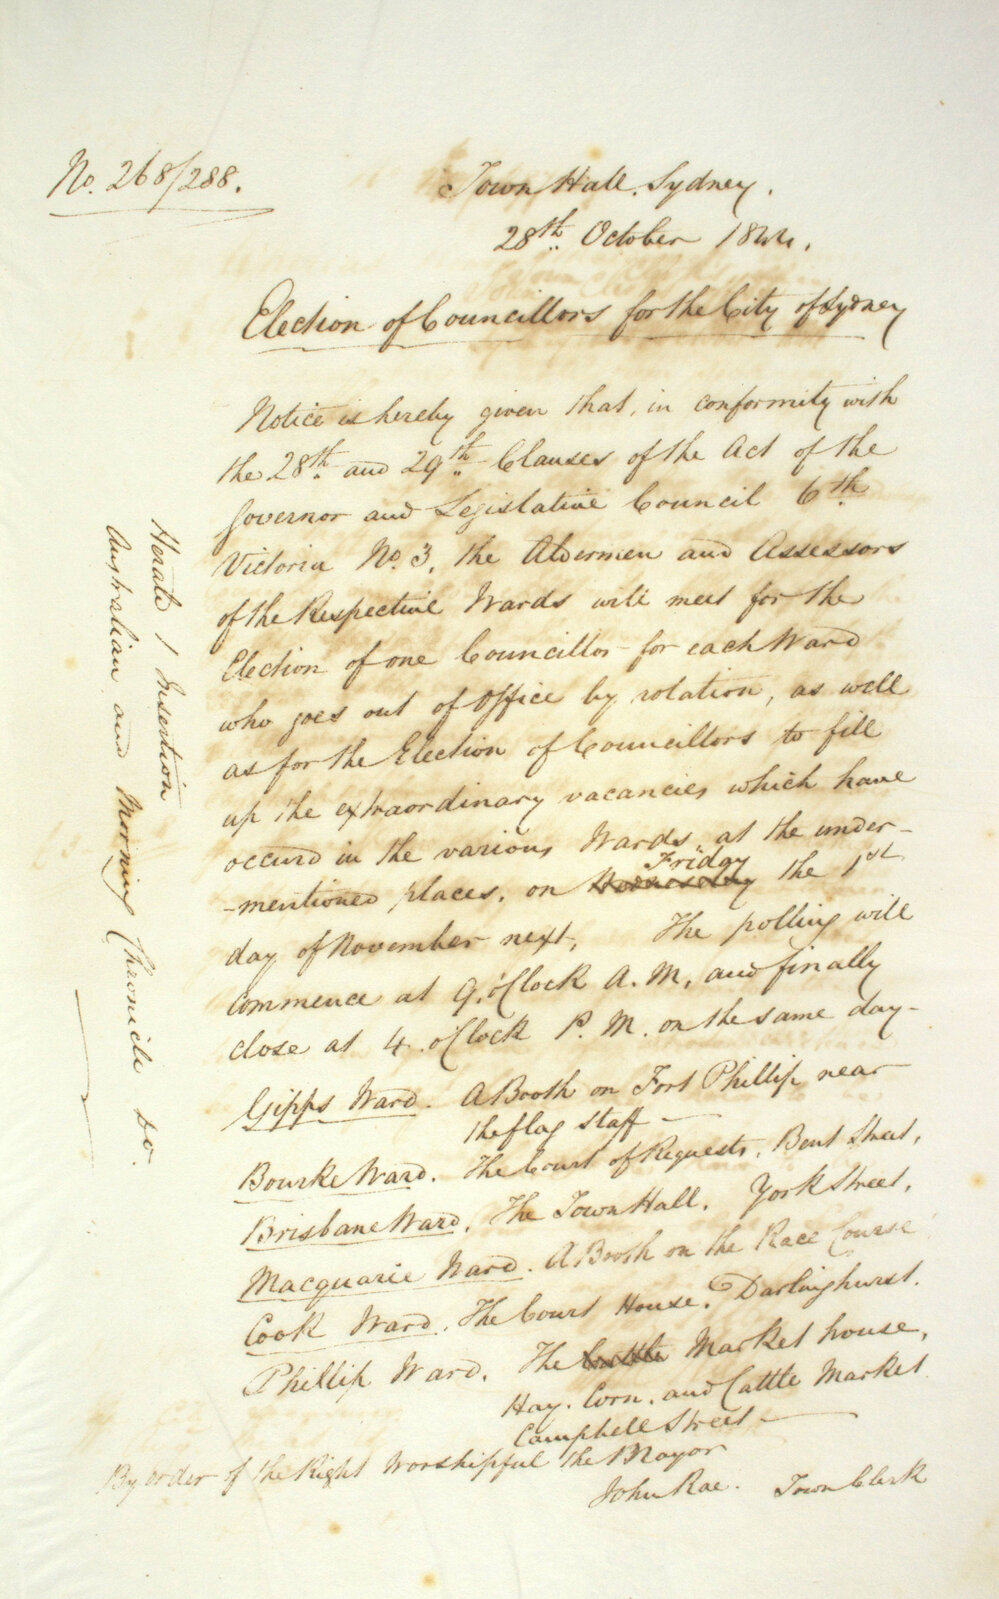 No. 268/288.
Town Hall. Sydney.
28th. October 1844.
Election of Councillors for the City of Sydney
Notice is hereby given that, in conformity with
the 28th. and 29th. Clauses of the Act of the
Governor and Legislative Council 6th.
Victoria No. 3, the Aldermen and Assessors
of the Respective Wards will meet for the
Election of one Councillor for each Ward
who goes out of Office by rotation, as well
as for the Election of Councillors to fill
up the extraordinary vacancies which have
occurd in the various Wards, at the under-
Friday
-mentioned places, on Wednesday the 1st.
day of November next, The polling will
commence at 9. o'Clock A.M. and finally
close at 4. o'Clock P.M. on the same day-
Gipps Ward. A Booth on Fort Phillip near
the flag staff —
Bourke Ward. The Court of Requests, Bent Street,
Brisbane Ward. The Town Hall. York Street,
Macquarie Ward. A Booth on the Race Course
Cook Ward. The Court House. Darlinghurst.
Phillip Ward. The Cattle Market house,
Hay. Corn. and Cattle Market
Campbell Street —
By order of the Right Worshipful the Mayor
John Rae. Town Clerk
Herald 1 Insertion
Australian and Morning Chronicle do.